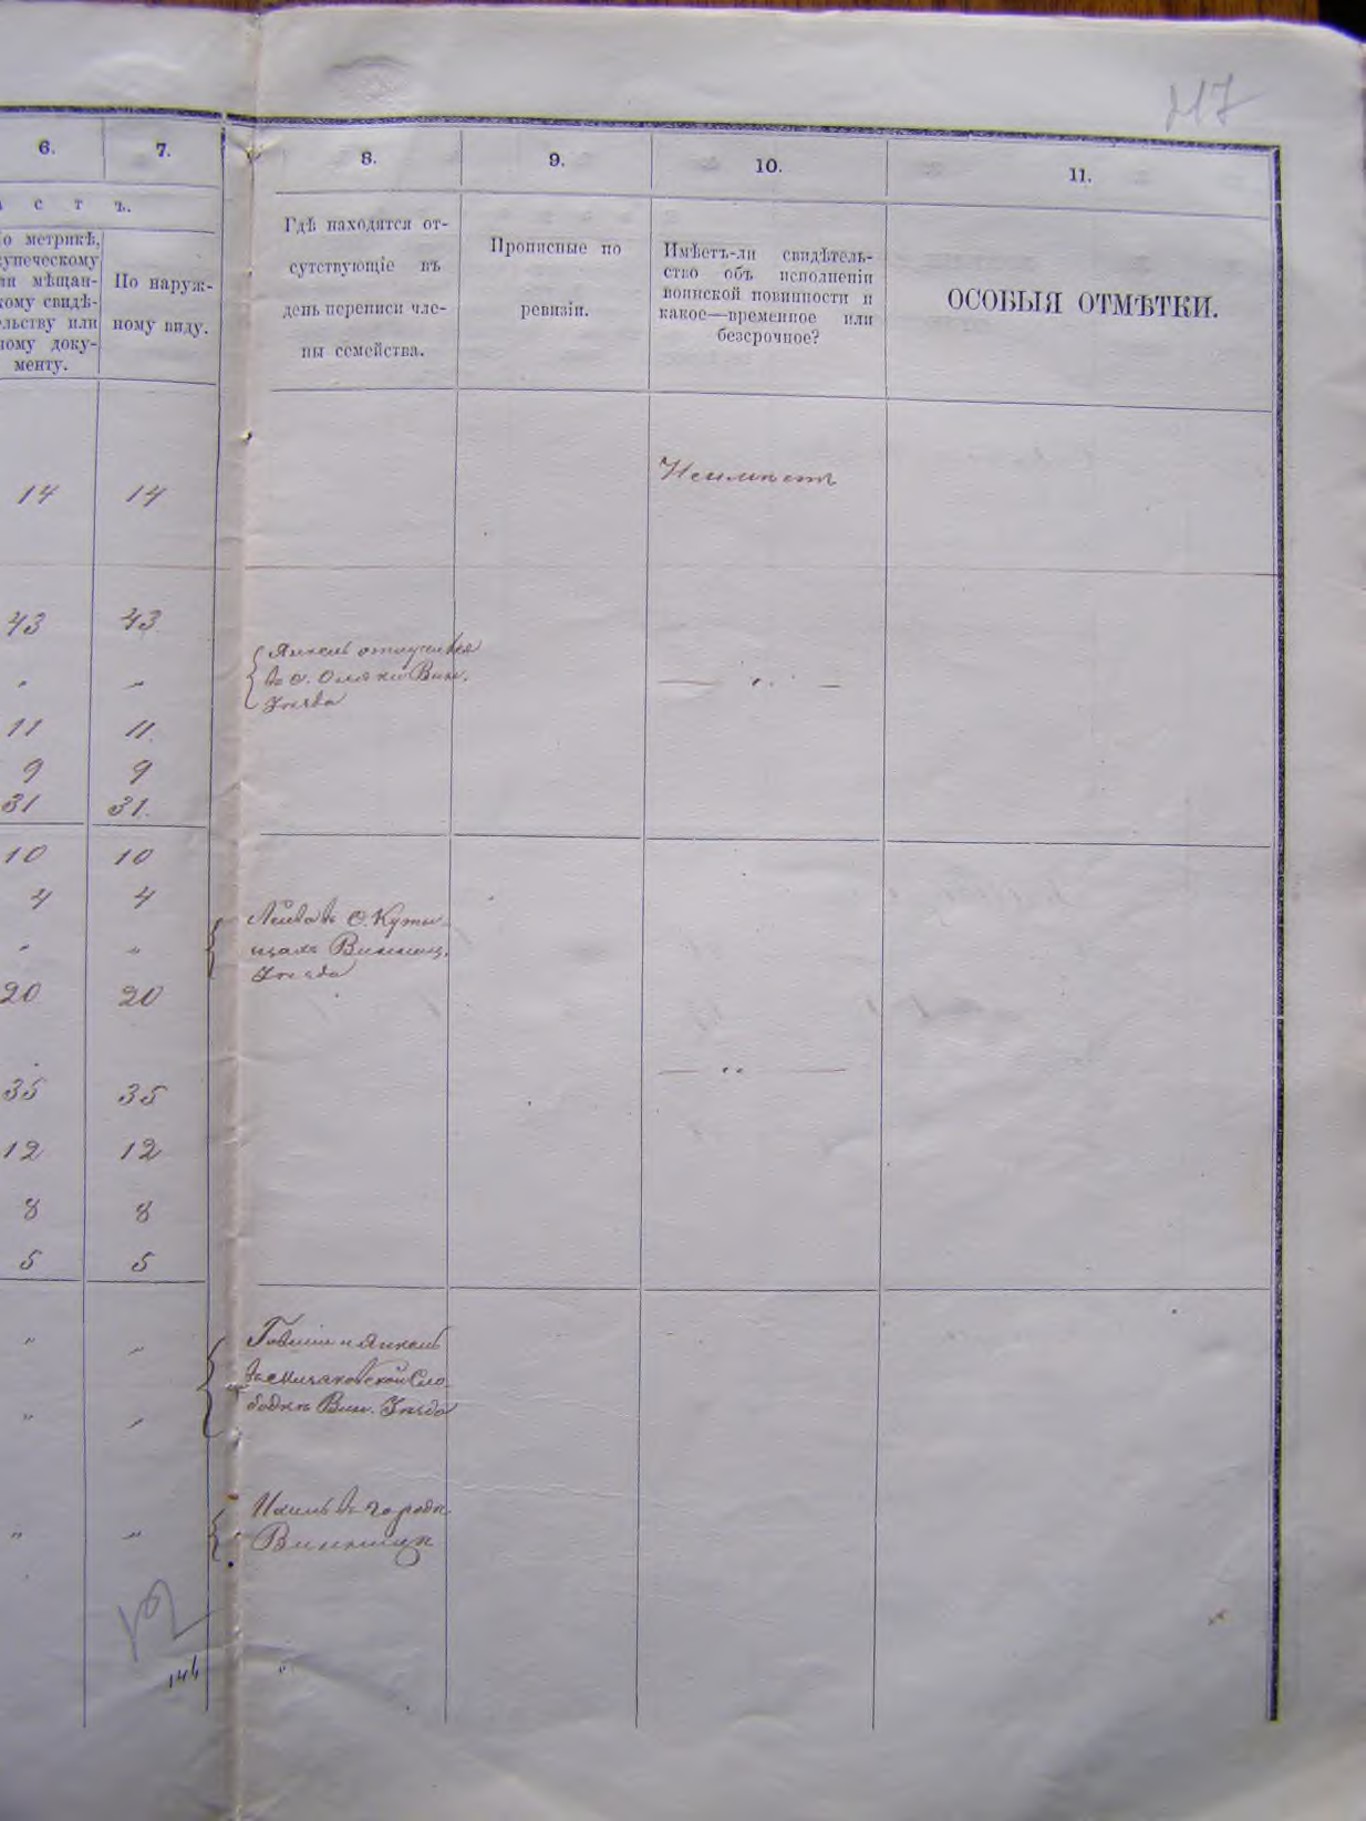 217
6. 7. 8. 9. 10. 11.
с т ъ.
о метрикѣ,
купеческому
ли мѣщан-
кому свидѣ-
ельству или
ному доку-
менту.
По наруж-
ному виду.
Гдѣ находятся от-
сутствующіе въ
день переписи чле-
ны семейства.
Прописные по
ревизіи.
Имѣетъ-ли свидѣтель-
ство объ исполненіи
воинской повинности и
какое—временное или
безсрочное?
ОСОБЫЯ ОТМѢТКИ.
14 14 Неимѣетъ
43 43
Янкель отлучился
въ с. Вин.
Уѣзда
" " — " —
11 11.
9 9
31 31.
10 10
4 4
Лейба въ с. Кути-
щахъ Винниц.
Уѣзда
" "
20 20
— " —
35 35
12 12
8 8
5 5
" "
и Янкель
Сло-
бодкѣ Вин. Уѣзда
" "
въ городѣ
Винницѣ
" "
144